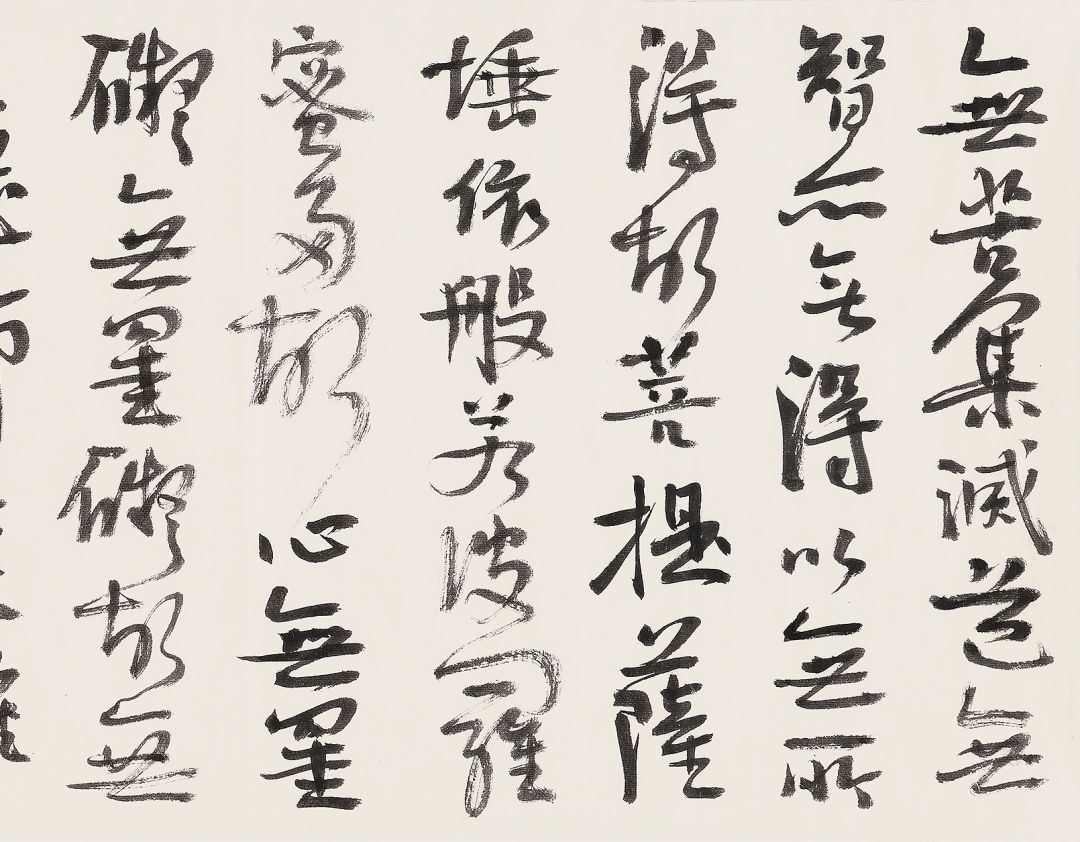 無苦集滅道無
智亦無得以無所
得故菩提薩
埵依般若波羅
蜜多故心無罣
礙無罣礙故無